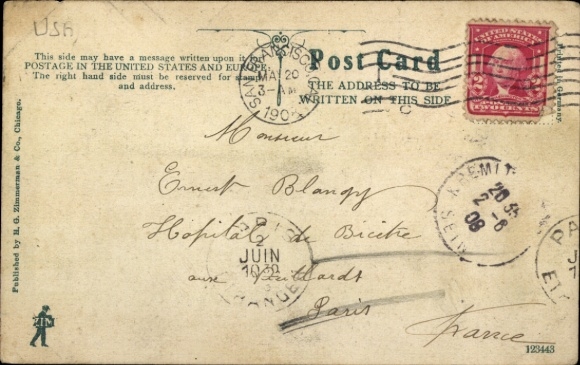 USA
This side may have a message written upon it for
POSTAGE IN THE UNITED STATES AND EUROPE
The right hand side must be reserved for stamp
and address.
Post Card
THE ADDRESS TO BE
WRITTEN ON THIS SIDE
SAN FRANCISCO, CAL.
MAY 20
3-AM
190
UNITED STATES OF AMERICA
2 2
TWO CENTS
Germany.
Monsieur
Ernest Blangy
Hôpital de Bicêtre
aux
Paris
France
KREMLIN
SEINE
20
2-6
08
PARIS
2
JUIN
ETRANGER
PA
Published by H. G. Zimmerman & Co., Chicago.
123443